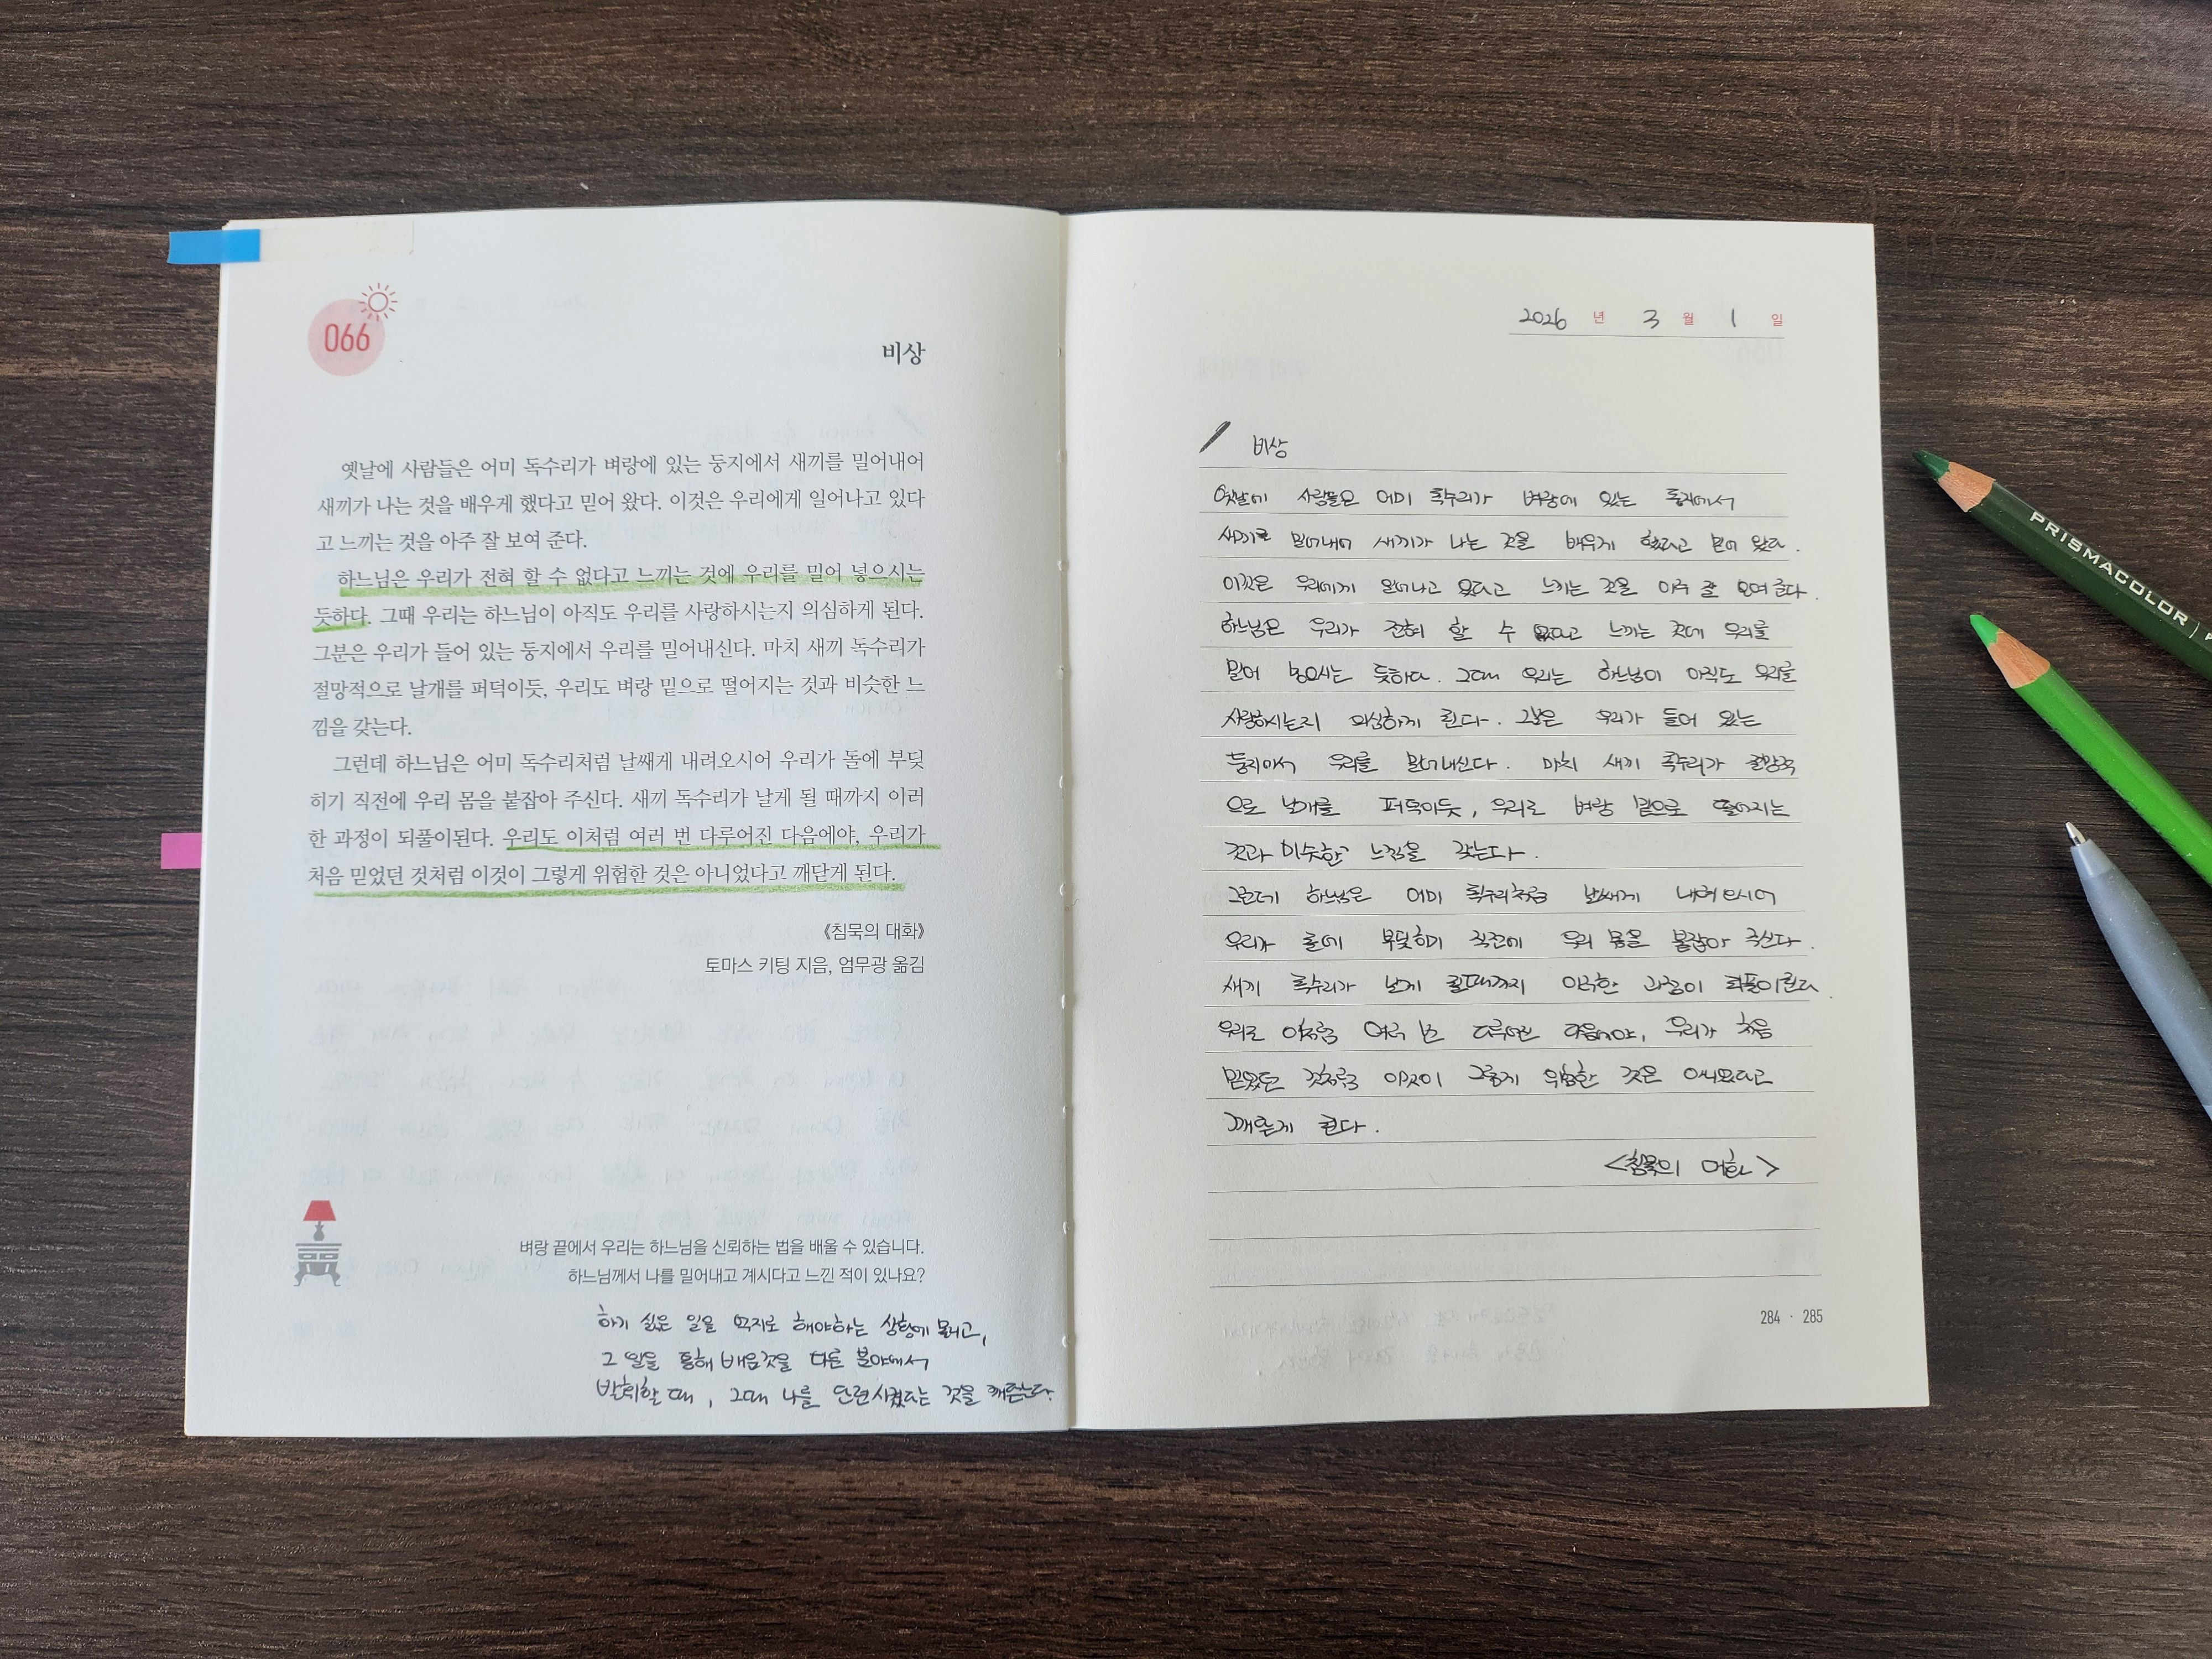 066
비상
옛날에 사람들은 어미 독수리가 벼랑에 있는 둥지에서 새끼를 밀어내어
새끼가 나는 것을 배우게 했다고 믿어 왔다. 이것은 우리에게 일어나고 있다
고 느끼는 것을 아주 잘 보여 준다.
하느님은 우리가 전혀 할 수 없다고 느끼는 것에 우리를 밀어 넣으시는
듯하다. 그때 우리는 하느님이 아직도 우리를 사랑하시는지 의심하게 된다.
그분은 우리가 들어 있는 둥지에서 우리를 밀어내신다. 마치 새끼 독수리가
절망적으로 날개를 퍼덕이듯, 우리도 벼랑 밑으로 떨어지는 것과 비슷한 느
낌을 갖는다.
그런데 하느님은 어미 독수리처럼 날쌔게 내려오시어 우리가 돌에 부딪
히기 직전에 우리 몸을 붙잡아 주신다. 새끼 독수리가 날게 될 때까지 이러
한 과정이 되풀이된다. 우리도 이처럼 여러 번 다루어진 다음에야, 우리가
처음 믿었던 것처럼 이것이 그렇게 위험한 것은 아니었다고 깨닫게 된다.
《침묵의 대화》
토마스 키팅 지음, 엄무광 옮김
벼랑 끝에서 우리는 하느님을 신뢰하는 법을 배울 수 있습니다.
하느님께서 나를 밀어내고 계시다고 느낀 적이 있나요?
하기 싫은 일을 억지로 해야하는 상황에 몰리고,
그 일을 통해 배운것을 다른 분야에서
발휘할 때, 그때 나를 단련시켰다는 것을 깨닫는다.
2026 년 3 월 1 일
비상
옛날에 사람들은 어미 독수리가 벼랑에 있는 둥지에서
새끼를 밀어내어 새끼가 나는 것을 배우게 했다고 믿어 왔다.
이것은 우리에게 일어나고 있다고 느끼는 것을 아주 잘 보여 준다.
하느님은 우리가 전혀 할 수 없다고 느끼는 것에 우리를
밀어 넣으시는 듯하다. 그때 우리는 하느님이 아직도 우리를
사랑하시는지 의심하게 된다. 그분은 우리가 들어 있는
둥지에서 우리를 밀어내신다. 마치 새끼 독수리가 절망적
으로 날개를 퍼덕이듯, 우리도 벼랑 밑으로 떨어지는
것과 비슷한 느낌을 갖는다.
그런데 하느님은 어미 독수리처럼 날쌔게 내려오시어
우리가 돌에 부딪히기 직전에 우리 몸을 붙잡아 주신다.
새끼 독수리가 날게 될때까지 이러한 과정이 되풀이된다.
우리도 이처럼 여러 번 다루어진 다음에야, 우리가 처음
믿었던 것처럼 이것이 그렇게 위험한 것은 아니었다고
깨닫게 된다.
<침묵의 대화>
284 · 285
PRISMACOLOR